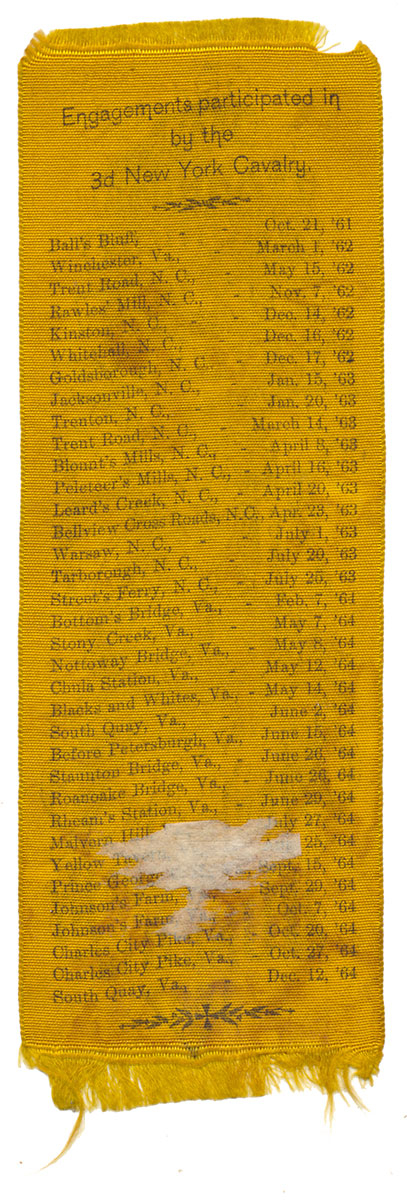 Engagements participated in
by the
3d New York Cavalry.
Ball's Bluff, - - Oct. 21, '61
Winchester, Va., - March 1, '62
Trent Road, N. C., - May 15, '62
Rawles' Mill, N. C., - Nov. 7, '62
Kinston, N. C., - Dec. 14, '62
Whitehall, N. C., - Dec. 16, '62
Goldsborough, N. C., - Dec. 17, '62
Jacksonville, N. C., - Jan. 15, '63
Trenton, N. C., - Jan. 20, '63
Trent Road, N. C., - March 14, '63
Blount's Mills, N. C., - April 8, '63
Peleteer's Mills, N. C., - April 16, '63
Leard's Creek, N. C., - April 20, '63
Bellview Cross Roads, N.C., Apr. 23, '63
Warsaw, N. C., - July 1, '63
Tarborough, N. C., - July 20, '63
Street's Ferry, N. C., - July 26, '63
Bottom's Bridge, Va., - Feb. 7, '64
Stony Creek, Va., - May 7, '64
Nottoway Bridge, Va., - May 8, '64
Chula Station, Va., - May 12, '64
Blacks and Whites, Va., - May 14, '64
South Quay, Va., - June 2, '64
Before Petersburgh, Va., June 15, '64
Staunton Bridge, Va., - June 26, '64
Roanoake Bridge, Va., - June 26, '64
Rheam's Station, Va., - June 29, '64
Malvern Hill July 27, '64
Yellow 25, '64
Prince George Sept. 15, '64
Johnson's Farm, Sept. 29, '64
Johnson's Farm, Oct. 7, '64
Charles City Pike, Va., - Oct. 20, '64
Charles City Pike, Va., - Oct. 27, '64
South Quay, Va., - Dec. 12, '64